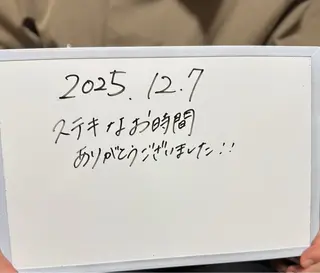 2025.12.7
ステキなお時間
ありがとうございました!!